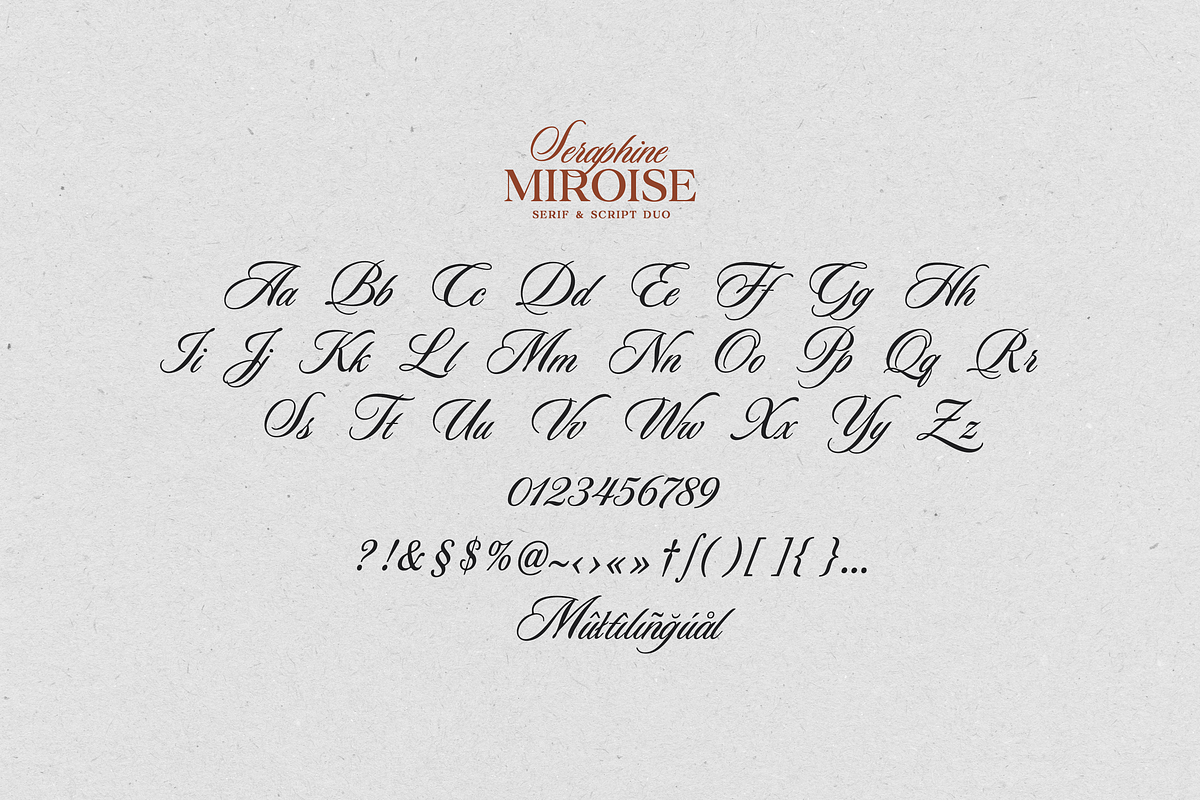 Seraphine
MIROISE
SERIF & SCRIPT DUO
Aa Bb Cc Dd Ee Ff Gg Hh
Ii Jj Kk Ll Mm Nn Oo Pp Qq Rr
Ss Tt Uu Vv Ww Xx Yy Zz
0123456789
?!&§$%@~‹›«»†∫()[]{}...
Mûłtılıñğúål